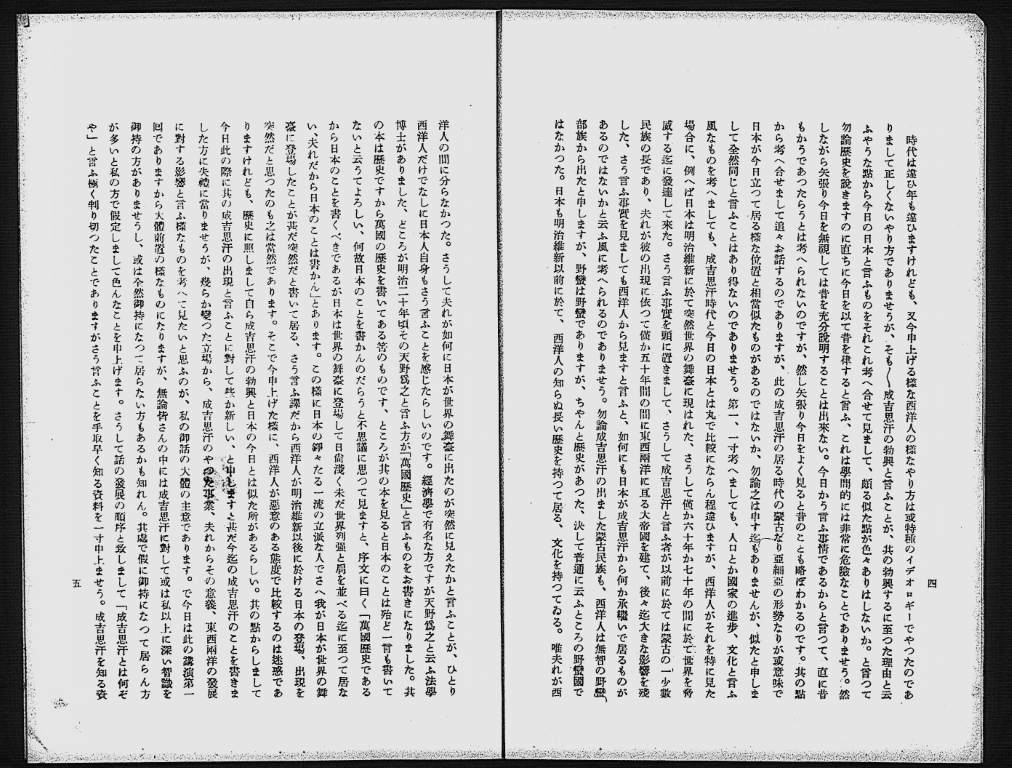 時代は違ひ年も違ひますけれども、又今申上げる様な西洋人の様なやり方は或特種のイデオロギーでやつたのであ
りまして正しくないやり方でありませうが、そも〱成吉思汗の勃興と言ふことが、其の勃興するに至つた理由と云
ふやうな點から今日の日本と言ふものをそれこれ考へ合せて見まして、頗る似た點が色々ありはしないか。と言つて
勿論歴史を說きますのに直ちに今日を以て昔を律すると言ふ、これは學問的には非常に危險なことでありませう。然
しながら矢張り今日を無視しては昔を充分說明することは出來ない。今日かう言ふ事情であるからと言つて、直に昔
もかうであつたらうとは考へられないのですが、然し矢張り今日をよく見ると昔のことも略ぼわかるのです。其の點
から考へ合せまして追々お話するのでありますが、此の成吉思汗の居る時代の蒙古なり亞細亞の形勢なりが或意味で
日本が今日立つて居る様な位置と相當似たものがあるのではないか、勿論之は申す迄もありませんが、似たと申しま
して全然同じと言ふことはあり得ないのでありませう。第一、一寸考へましても、人口とか國家の進步、文化と言ふ
風なものを考へましても、成吉思汗時代と今日の日本とは丸で比較にならん程違ひますが、西洋人がそれを特に見た
場合に、例へば日本は明治維新に於て突然世界の舞臺に現はれた、さうして僅か六十年か七十年の間に於て世界を脅
威する迄に發達して來た。さう言ふ事實を頭に置きまして、さうして成吉思汗と言ふ者が以前に於ては蒙古の一少數
民族の長であり、夫れが彼の出現に依つて僅か五十年間の間に東西兩洋に亘る大帝國を建て、後々迄大きな影響を殘
した、さう言ふ事實を見ましても西洋人から見ますと言ふと、如何にも日本が成吉思汗から何か承繼いで居るものが
あるのではないかと云ふ風に考へられるのでありませう。勿論成吉思汗の出ました蒙古民族も、西洋人は無智の野蠻
部族から出たと申しますが、野蠻は野蠻でありますが、ちやんと歷史があつた、決して普通に云ふところの野蠻國で
はなかつた。日本も明治維新以前に於て、西洋人の知らぬ長い歷史を持つて居る、文化を持つてゐる。唯夫れが西
四
洋人の間に分らなかつた。さうして夫れが如何に日本が世界の舞臺に出たのが突然に見えたかと言ふことが、ひとり
西洋人だけでなしに日本人自身もさう言ふことを感じたらしいのです。經濟學で有名な方ですが天野爲之と云ふ法學
博士がありました。どころが明治二十年頃その天野爲之と言ふ方が「萬國歷史」と言ふものをお書きになりました。其
の本は歷史ですから萬國の歷史を書いてある筈のものです、ところが其の本を見ると日本のことは殆ど一言も書いて
ないと云うてよろしい、何故日本のことを書かんのだらうと不思議に思つて見ますと、序文に曰く「萬國歷史である
から日本のことを書くべきであるが日本は世界の舞臺に登場して日尙淺く未だ世界列强と肩を並べる迄に至つて居な
い、夫れだから日本のことは書かん」とあります。この様に日本の錚々たる一流の立派な人でさへ我が日本が世界の舞
臺に登場したことが甚だ突然だと書いて居る、さう言ふ譯だから西洋人が明治維新以後に於ける日本の登場、出現を
突然だと思つたのも之は當然であります。そこで今申上げた様に、西洋人が惡意のある態度で比較するのは迷惑であ
りますけれども、歷史に照しまして自ら成吉思汗の勃興と日本の今日とは似た所があるらしい。其の點からしまして
今日此の際に其の成吉思汗の出現と言ふことに對して些か新しい、と申しますと甚だ今迄の成吉思汗のことを書きま
した方に失禮に當りませうが、幾らか變つた立場から、成吉思汗のやつた事業、夫れからその意義、東西兩洋の發展
に對する影響と言ふ様なものを考へて見たいと思ふのが、私の御話の大體の主意であります。で今日は此の講演第一
回でありますから大體前置の様なものになりますが、無論皆さんの中には成吉思汗に對して或は私以上に深い智識を
御持の方がありませうし、或は全然御持になつて居らない方もあるかも知れん。其處で假に御持になつて居らん方
が多いと私の方で假定しまして色んなことを申上げます。さうして話の發展の順序と致しまして「成吉思汗とは何ぞ
や」と言ふ極く判り切つたことでありますがさう言ふことを手取早く知る資料を一寸申上ませう。成吉思汗を知る資
五